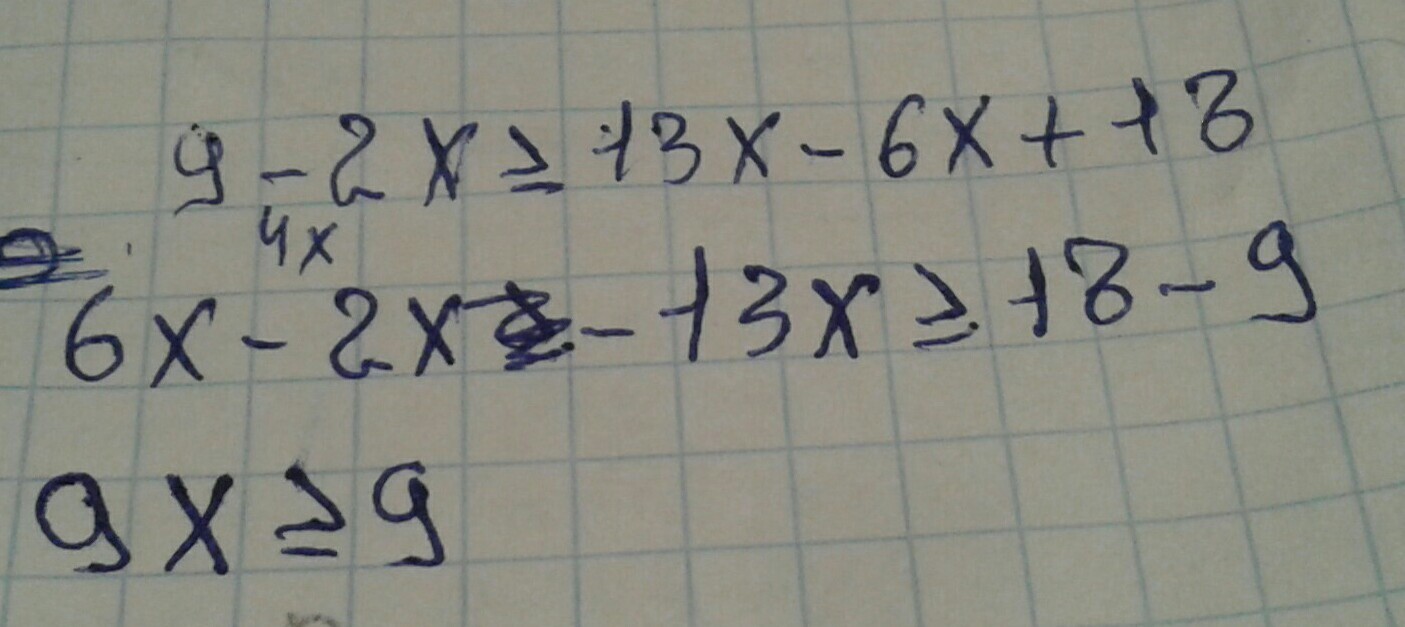 9 - 2x ≥ 13x - 6x + 18
4x
6x - 2x - 13x ≥ 18 - 9
9x ≥ 9